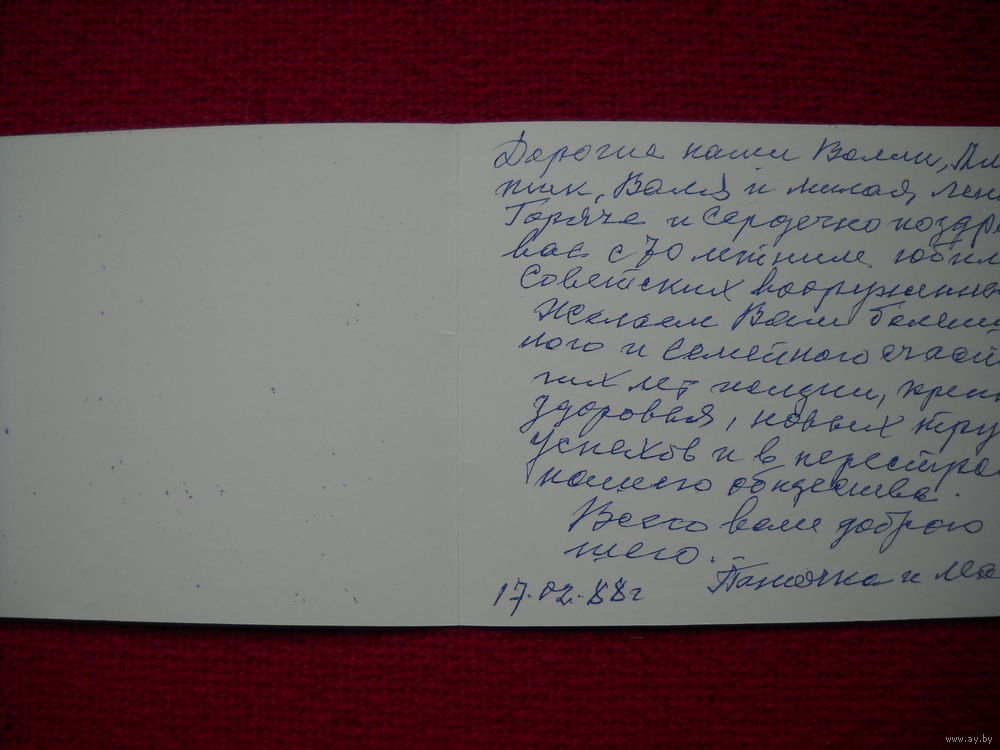 Дорогие наши Валли,
тик, Валя и милая
Горяче и сердечно поздр
вас с 70 летним юбил
Советских вооруженно
Желаем Вам больш
ного и семейного счаст
гих лет жизни, креп
здоровья, новых тру
успехов и в перестро
нашего общества.
Всего вам доброго
шего.
17.02.88г Таточка и
www.ay.by